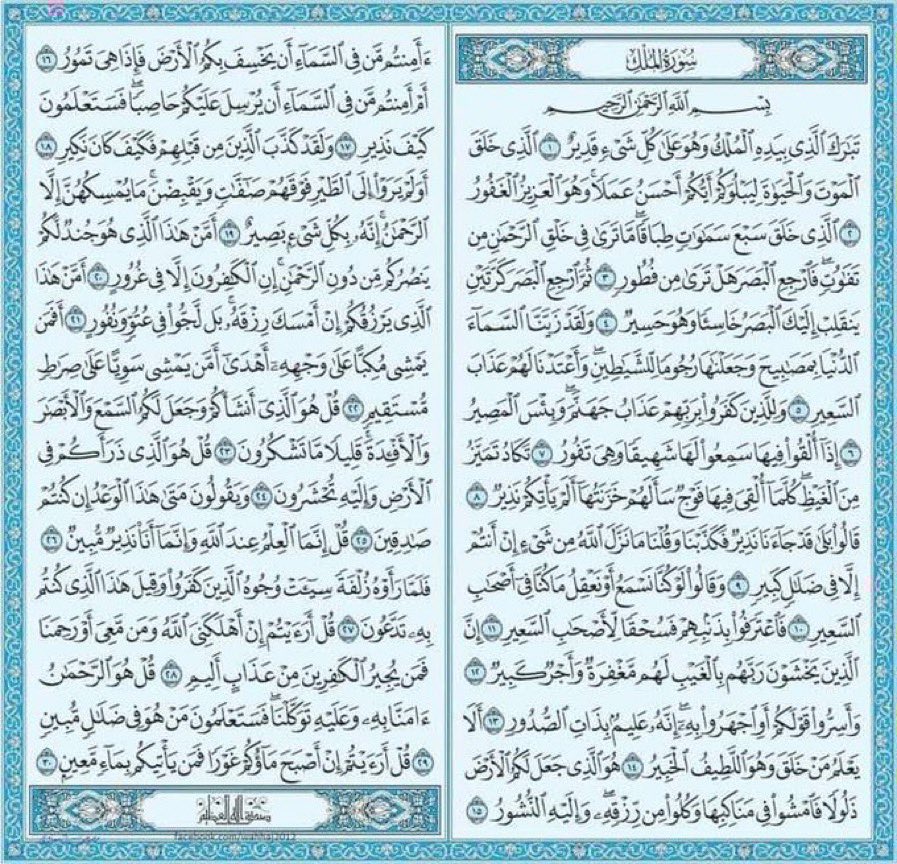 سُورَةُ المُلْكِ
بِسْمِ ٱللَّهِ ٱلرَّحْمَٰنِ ٱلرَّحِيمِ
تَبَٰرَكَ ٱلَّذِى بِيَدِهِ ٱلْمُلْكُ وَهُوَ عَلَىٰ كُلِّ شَىْءٍ قَدِيرٌ ١ ٱلَّذِى خَلَقَ
ٱلْمَوْتَ وَٱلْحَيَوٰةَ لِيَبْلُوَكُمْ أَيُّكُمْ أَحْسَنُ عَمَلًا ۚ وَهُوَ ٱلْعَزِيزُ ٱلْغَفُورُ
٢ ٱلَّذِى خَلَقَ سَبْعَ سَمَٰوَٰتٍ طِبَاقًا ۖ مَّا تَرَىٰ فِى خَلْقِ ٱلرَّحْمَٰنِ مِن
تَفَٰوُتٍ ۖ فَٱرْجِعِ ٱلْبَصَرَ هَلْ تَرَىٰ مِن فُطُورٍ ٣ ثُمَّ ٱرْجِعِ ٱلْبَصَرَ كَرَّتَيْنِ
يَنقَلِبْ إِلَيْكَ ٱلْبَصَرُ خَاسِئًا وَهُوَ حَسِيرٌ ٤ وَلَقَدْ زَيَّنَّا ٱلسَّمَآءَ
ٱلدُّنْيَا بِمَصَٰبِيحَ وَجَعَلْنَٰهَا رُجُومًا لِّلشَّيَٰطِينِ ۖ وَأَعْتَدْنَا لَهُمْ عَذَابَ
ٱلسَّعِيرِ ٥ وَلِلَّذِينَ كَفَرُوا۟ بِرَبِّهِمْ عَذَابُ جَهَنَّمَ ۖ وَبِئْسَ ٱلْمَصِيرُ
٦ إِذَآ أُلْقُوا۟ فِيهَا سَمِعُوا۟ لَهَا شَهِيقًا وَهِىَ تَفُورُ ٧ تَكَادُ تَمَيَّزُ
مِنَ ٱلْغَيْظِ ۖ كُلَّمَآ أُلْقِىَ فِيهَا فَوْجٌ سَأَلَهُمْ خَزَنَتُهَآ أَلَمْ يَأْتِكُمْ نَذِيرٌ ٨
قَالُوا۟ بَلَىٰ قَدْ جَآءَنَا نَذِيرٌ فَكَذَّبْنَا وَقُلْنَا مَا نَزَّلَ ٱللَّهُ مِن شَىْءٍ إِنْ أَنتُمْ
إِلَّا فِى ضَلَٰلٍ كَبِيرٍ ٩ وَقَالُوا۟ لَوْ كُنَّا نَسْمَعُ أَوْ نَعْقِلُ مَا كُنَّا فِىٓ أَصْحَٰبِ
ٱلسَّعِيرِ ١٠ فَٱعْتَرَفُوا۟ بِذَنۢبِهِمْ فَسُحْقًا لِّأَصْحَٰبِ ٱلسَّعِيرِ ١١ إِنَّ
ٱلَّذِينَ يَخْشَوْنَ رَبَّهُم بِٱلْغَيْبِ لَهُم مَّغْفِرَةٌ وَأَجْرٌ كَبِيرٌ ١٢
وَأَسِرُّوا۟ قَوْلَكُمْ أَوِ ٱجْهَرُوا۟ بِهِۦٓ ۖ إِنَّهُۥ عَلِيمٌۢ بِذَاتِ ٱلصُّدُورِ ١٣ أَلَا
يَعْلَمُ مَنْ خَلَقَ وَهُوَ ٱللَّطِيفُ ٱلْخَبِيرُ ١٤ هُوَ ٱلَّذِى جَعَلَ لَكُمُ ٱلْأَرْضَ
ذَلُولًا فَٱمْشُوا۟ فِى مَنَاكِبِهَا وَكُلُوا۟ مِن رِّزْقِهِۦ ۖ وَإِلَيْهِ ٱلنُّشُورُ ١٥
ءَأَمِنتُم مَّن فِى ٱلسَّمَآءِ أَن يَخْسِفَ بِكُمُ ٱلْأَرْضَ فَإِذَا هِىَ تَمُورُ ١٦
أَمْ أَمِنتُم مَّن فِى ٱلسَّمَآءِ أَن يُرْسِلَ عَلَيْكُمْ حَاصِبًا ۖ فَسَتَعْلَمُونَ
كَيْفَ نَذِيرِ ١٧ وَلَقَدْ كَذَّبَ ٱلَّذِينَ مِن قَبْلِهِمْ فَكَيْفَ كَانَ نَكِيرِ ١٨
أَوَلَمْ يَرَوْا۟ إِلَى ٱلطَّيْرِ فَوْقَهُمْ صَٰٓفَّٰتٍ وَيَقْبِضْنَ ۚ مَا يُمْسِكُهُنَّ إِلَّا
ٱلرَّحْمَٰنُ ۚ إِنَّهُۥ بِكُلِّ شَىْءٍۭ بَصِيرٌ ١٩ أَمَّنْ هَٰذَا ٱلَّذِى هُوَ جُندٌ لَّكُمْ
يَنصُرُكُم مِّن دُونِ ٱلرَّحْمَٰنِ ۚ إِنِ ٱلْكَٰفِرُونَ إِلَّا فِى غُرُورٍ ٢٠ أَمَّنْ هَٰذَا
ٱلَّذِى يَرْزُقُكُمْ إِنْ أَمْسَكَ رِزْقَهُۥ ۚ بَل لَّجُّوا۟ فِى عُتُوٍّ وَنُفُورٍ ٢١ أَفَمَن
يَمْشِى مُكِبًّا عَلَىٰ وَجْهِهِۦٓ أَهْدَىٰٓ أَمَّن يَمْشِى سَوِيًّا عَلَىٰ صِرَٰطٍ
مُّسْتَقِيمٍ ٢٢ قُلْ هُوَ ٱلَّذِىٓ أَنشَأَكُمْ وَجَعَلَ لَكُمُ ٱلسَّمْعَ وَٱلْأَبْصَٰرَ
وَٱلْأَفْـِٔدَةَ ۖ قَلِيلًا مَّا تَشْكُرُونَ ٢٣ قُلْ هُوَ ٱلَّذِى ذَرَأَكُمْ فِى
ٱلْأَرْضِ وَإِلَيْهِ تُحْشَرُونَ ٢٤ وَيَقُولُونَ مَتَىٰ هَٰذَا ٱلْوَعْدُ إِن كُنتُمْ
صَٰدِقِينَ ٢٥ قُلْ إِنَّمَا ٱلْعِلْمُ عِندَ ٱللَّهِ وَإِنَّمَآ أَنَا۠ نَذِيرٌ مُّبِينٌ ٢٦
فَلَمَّا رَأَوْهُ زُلْفَةً سِيٓـَٔتْ وُجُوهُ ٱلَّذِينَ كَفَرُوا۟ وَقِيلَ هَٰذَا ٱلَّذِى كُنتُم
بِهِۦ تَدَّعُونَ ٢٧ قُلْ أَرَءَيْتُمْ إِنْ أَهْلَكَنِىَ ٱللَّهُ وَمَن مَّعِىَ أَوْ رَحِمَنَا
فَمَن يُجِيرُ ٱلْكَٰفِرِينَ مِنْ عَذَابٍ أَلِيمٍ ٢٨ قُلْ هُوَ ٱلرَّحْمَٰنُ
ءَامَنَّا بِهِۦ وَعَلَيْهِ تَوَكَّلْنَا ۖ فَسَتَعْلَمُونَ مَنْ هُوَ فِى ضَلَٰلٍ مُّبِينٍ
٢٩ قُلْ أَرَءَيْتُمْ إِنْ أَصْبَحَ مَآؤُكُمْ غَوْرًا فَمَن يَأْتِيكُم بِمَآءٍ مَّعِينٍۭ ٣٠
صدق الله العظيم
facebook.com/wahhaj2012